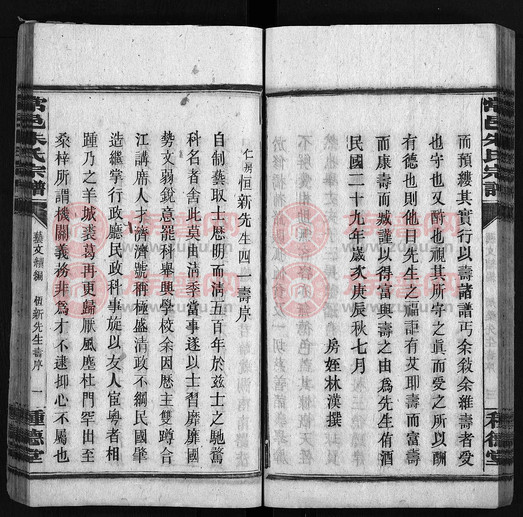 而預縷其實行以壽諸譜丐余敘余維壽者受
也守也又酧也視其所守之眞而愛之所以酬
有德也則他日先生之福詎有艾耶壽而富壽
而康壽而臧謹以得富與壽之由爲先生侑酒
民國二十九年歲次庚辰秋七月
房姪林漢撰
常邑朱氏宗譜
種德堂
仁朔恒新先生四一壽序
自制藝取士歷明而淸五百年於兹士之馳騖
科名者舍此莫由淸季當事遂以士習靡靡國
勢文弱銳意罷科舉興學校余因厯主雙蹲合
江講席人才濟濟號稱極盛淸政不綱民國肇
造繼掌行政廳民政科事旋以友人宦粵者相
踵乃之羊城裘葛再更歸厭風塵杜門罕出至
桑梓所謂機關義務非爲才不逮抑心不屬也
常邑朱氏宗譜
藝文續編
恒新先生壽序
一
種德堂
族譜网
www.zupu.cn